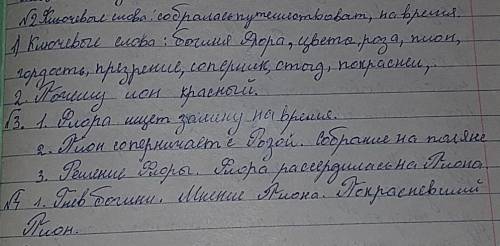 №2 Ключевые слова: собралась путешествовать, на время.
1) Ключевые слова: богиня Флора, цветы, роза, пион,
гордость, презрение, соперник, стыд, покраснел,.
2. Почему пион красный.
№3. 1. Флора ищет замену на время.
2. Пион соперничает с Розой. Собрание на поляне
3. Решение Флоры. Флора рассердилась на Пиона.
№4 1. Гнев богини. Мнение Пиона. Покрасневший
Пион.